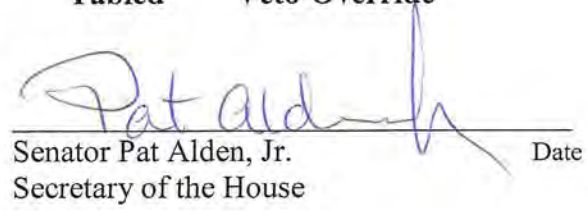 Tabled Veto Override
Pat Alden Jr
Senator Pat Alden, Jr. Date
Secretary of the House